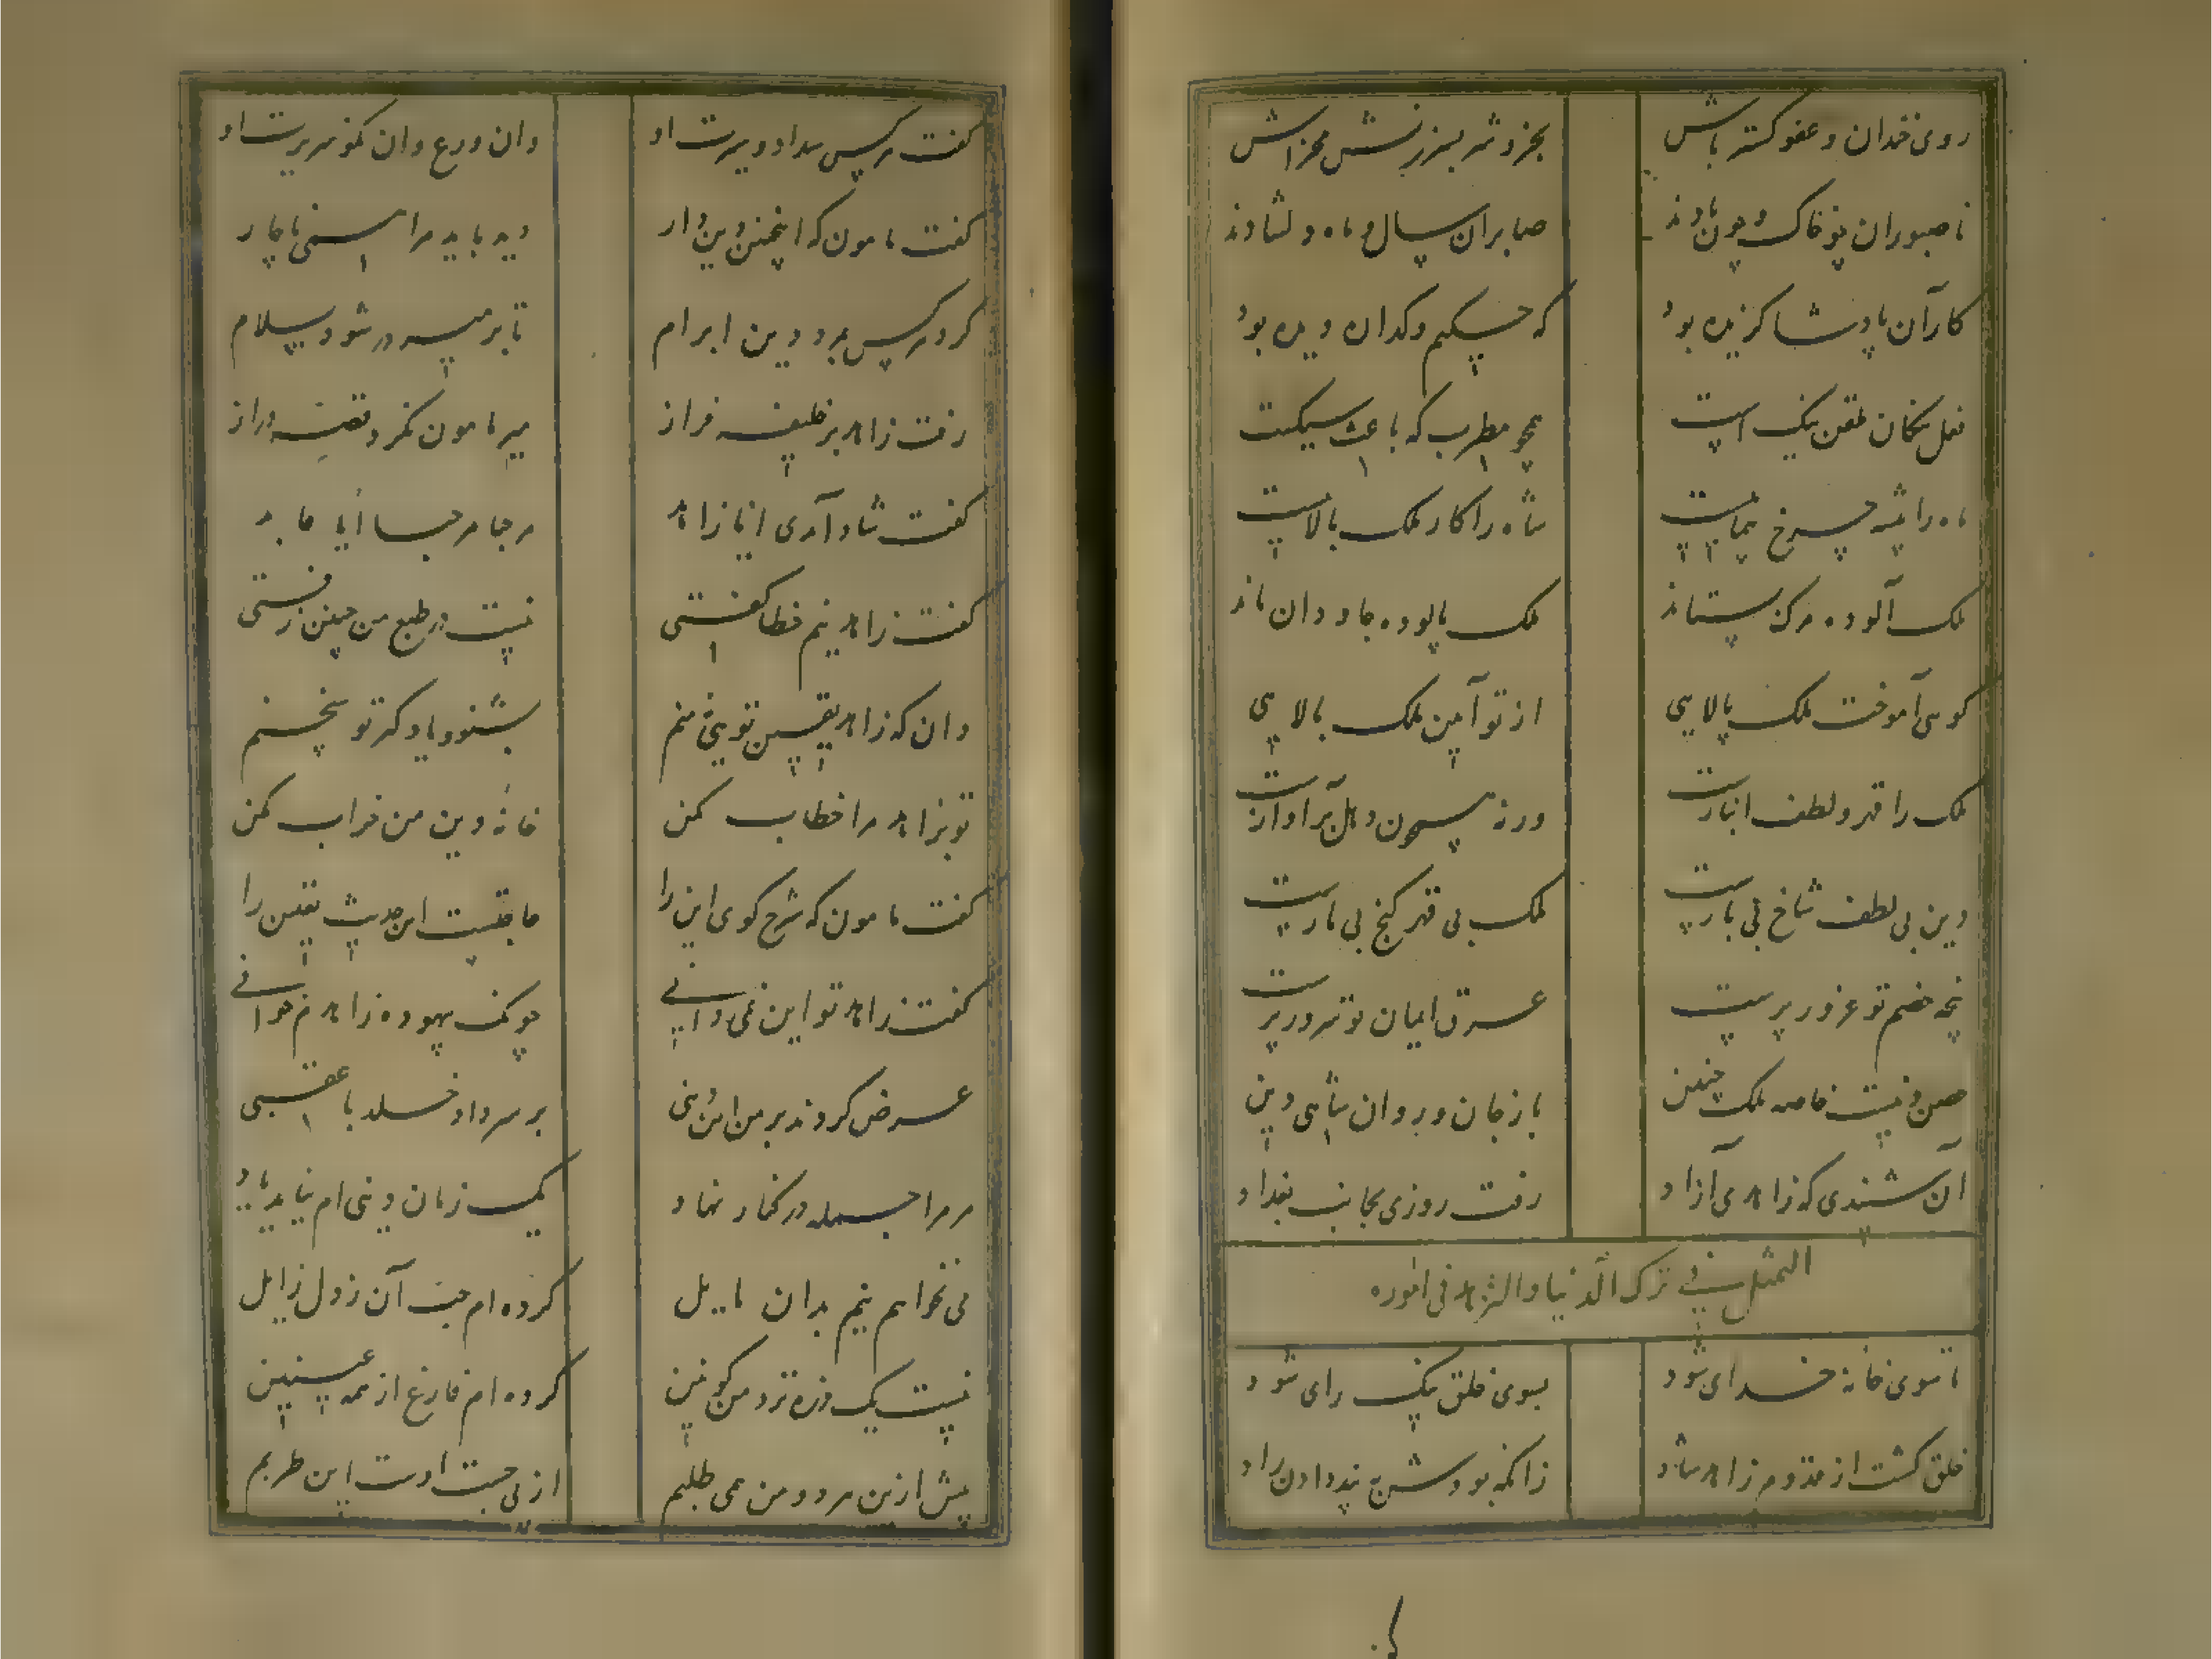 روی خندان و عفو گستر باش بخرد شر بسرزنش مخراش
ناصبوران چو خاک و چون بادند صابران سال و ماه دلشادند
کار آن پادشا گزیده بود که حکیم و کدان دیده بود
فعل نیکان ملقن نیکیست همچو مطرب که باعث سیکیست
ماه را پیشه چرخ پیماییست شاه را کار ملک بالاییست
ملک آلوده مرگ بستاند ملک پالوده جاودان ماند
گوی آموخت ملک پالایی از تو آیین ملک بالایی
ملک را قهر و لطف انبازست ورنه سیمون و هل برآوازست
دین بی لطف شاخ بی بارست ملک بی قهر گنج بی مارست
پنجه خصم تو غرورپرست عرق ایمان تو سرورپرست
حصن دنیست خاصه ملک چنین باز جان و روان شاهی دین
آن شنیدی که زاهدی آزاد رفت روزی بجانب بغداد
التمثیل فی ترک الدنیا والزهد فی اموره
تا سوی خانه خدای شود بسوی خلق نیک رای شود
خلق گشت از قدوم زاهد شاد زانکه بودش به پند دادن راد
گفت هرکس سداد و سیرت او وان ورع وان نکو سریرت او
گفت مامون که اینچنین دین دار دید باید مرا همی ناچار
کرد هرکس بمرد دین ابرام تا بر میر در شود بسلام
رفت زاهد بر خلیفه فراز میر مامون نکرد قصه دراز
گفت شاد آمدی ایا زاهد مرحبا مرحبا ایا عابد
گفت زاهد نیم خطا گفتی نیست در طبع من چنین زفتی
وان که زاهد یقین تویی نه منم بشنو و یاد گیر تو سخنم
تو بزاهد مرا خطاب مکن خانه دین من خراب مکن
گفت مامون که شرح گوی این را ما چیست این حدیث یقین را
گفت زاهد تو این نمی دانی چو کنی بیهوده زاهدم خوانی
عرض کردند بر من این دنیی بر سر داد خلد با عقبی
مر مرا جمله در کنار نهاد یک زمان دینی ام نیاید یاد
می نخواهم نیم بدان مایل کرده ام حب آن ز دل زایل
نیست یک ذره نزد من کونین کرده ام فارغ از همه عینین
بیش ازین هر دو من همی طلبم از پی حبت اوست این طربم